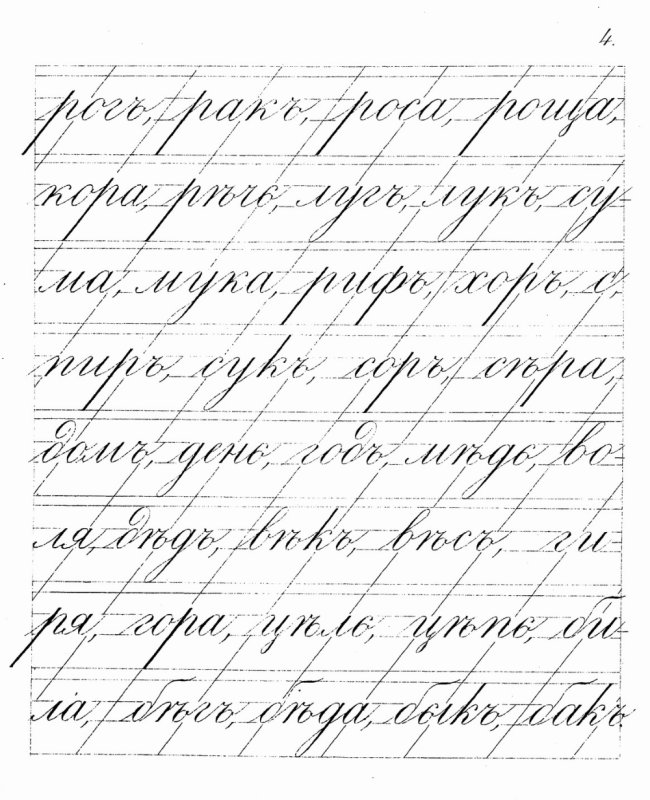 4.
рогъ, ракъ, роса, роща,
кора, рѣчь, лугъ, лукъ, су-
ма, мука, рифъ, хоръ, с,
пиръ, сукъ, соръ, сѣра,
домъ, день, годъ, мѣдь, во-
ля, дѣдъ, вѣкъ, вѣсъ, ги-
ря, гора, цѣль, цѣпь, би-
ла, бѣгъ, бѣда, быкъ, бакъ.